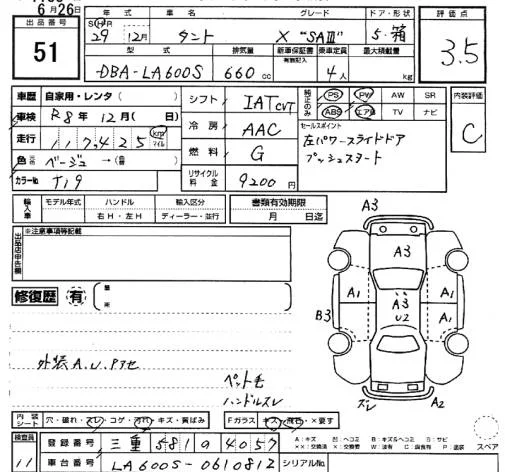 6月26日
出品番号 年式 車名 グレード ドア・形状 評価点
51 SH年 29 12月 タント X "SAⅢ" 5・箱 3.5
型式 排気量 新車保証書 乗車定員 最大積載量
有無記入
DBA-LA600S 660cc 4人 kg
車歴 自家用・レンタ( ) シフト IAT CVT 純正のみ PS PW AW SR 内装評価
車検 R8年12月( 日) ABS エアB TV ナビ C
走行 117,425 km マイル 冷房 AAC セールスポイント
左パワースライドドア
色 元色 ベージュ→(自 ) 燃料 G プッシュスタート
カラーNo T19 リサイクル料金 9200円
輸入車 モデル年式 ハンドル 輸入区分 書類有効期限
年 右H・左H ディーラー・並行 月 日迄
出品店申告欄 ※注意事項等記載
A3
A3
修復歴 有 箇所
A1 A3 A1
B3 A1 U2 A1
外装A.U.Pアセ
ペット毛
ハンドルスレ
スレ A2
内装シート 穴・破れ・スレ・コゲ・汚れ・キズ・黄ばみ Fガラス キズ・飛石・×要す
スペア
検査員 登録番号 三重581す4057 A:キズ U:ヘコミ B:キズ&ヘコミ S:サビ
××:交換済 ×:要交換 W:波有 C:腐食有 P:塗装
11 車台番号 LA600S-0610812 シリアルNo.